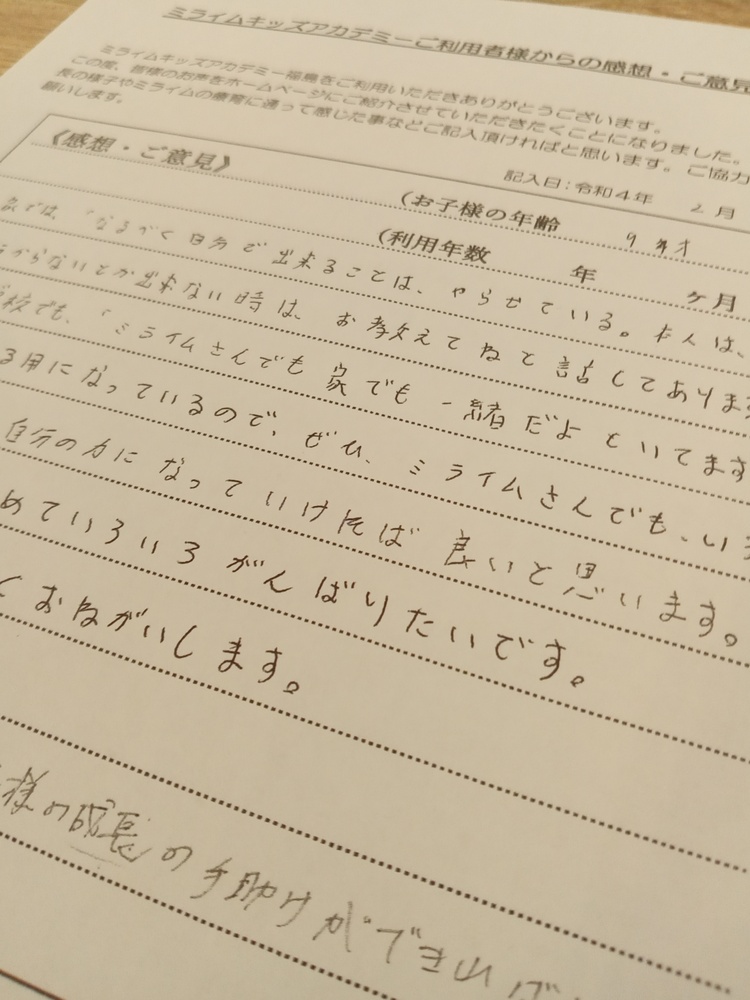 ミライムキッズアカデミーご利用者様からの感想・ご意見
ミライムキッズアカデミー福島をご利用いただきありがとうございます。
この度、皆様のお声をホームページにご紹介させていただきたくことになりました。
長の様子やミライムの療育に通って感じた事などご記入頂ければと思います。ご協力
願いします。
記入日：令和4年 2月
《感想・ご意見》
(お子様の年齢 9才
(利用年数 年 ヶ月
家では、「なるべく自分で出来ることは、やらせている。本人は、
らからないとか出来ない時は、お教えてねと話してあります
学校でも、「ミライムさんでも家でも一緒だよといてます
る用になっているので、ぜひ、ミライムさんでも、いろ
自分の力になっていければ良いと思います。
めていろいろがんばりたいです。
くおねがいします。
様の成長の手助けができれば